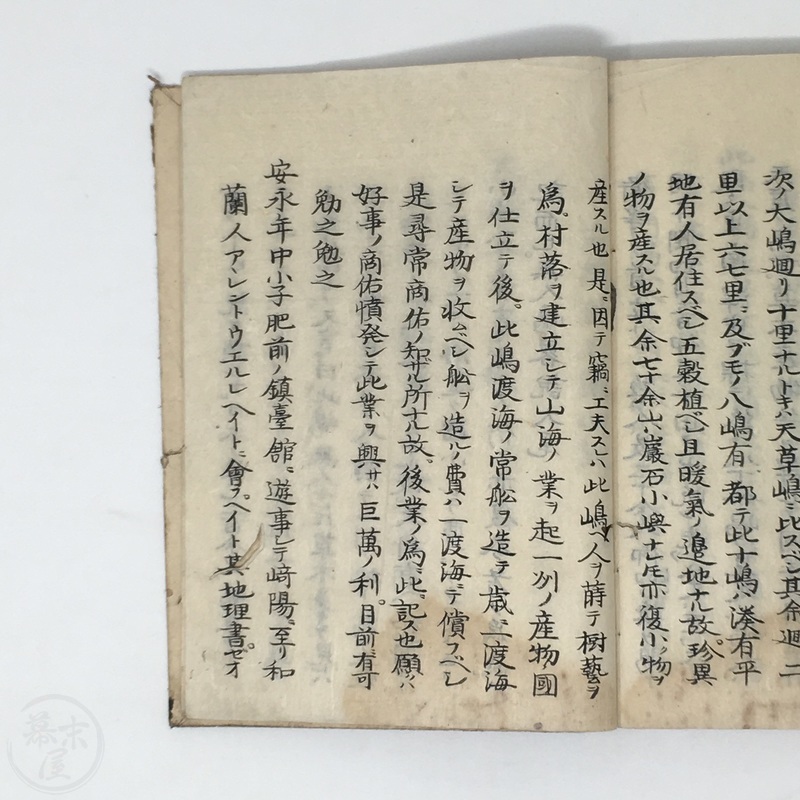 次ノ大嶋廻リ十里ナルトキハ天草嶋ニ比スベシ其余廻二
里以上六七里ニ及ブモノ八嶋有都テ此十嶋ハ湊有平
地有人居住スベシ五穀植ベシ且暖氣ノ邉地ナル故珍異
ノ物ヲ産スル也其余七十余ハ巖石小嶼ナレ𪜈亦復小ノ物ヲ
産スル也是ニ因テ竊ニ工夫スレハ此嶋ヘ人ヲ蒔テ樹藝ヲ
為。村落ヲ建立シテ山海ノ業ヲ起一州ノ産物國
ヲ仕立テ後。此嶋渡海ノ常舩ヲ造テ歳ニ三渡海
シテ産物ヲ收ムベシ舩ヲ造ルノ費ハ一渡海ニテ償フベシ
是尋常商估ノ知ザル所ナル故。後業ノ為ニ此ニ記ス也願クハ
好事ノ商估憤発シテ此業ヲ興サハ巨萬ノ利。目前ニ有可
勉之勉之
安永年中小子肥前ノ鎮臺館ニ遊事シテ﨑陽ニ至リ和
蘭人アーレントウエルレヘイトニ會フ。ヘイト其地理書ゼオ
幕末屋